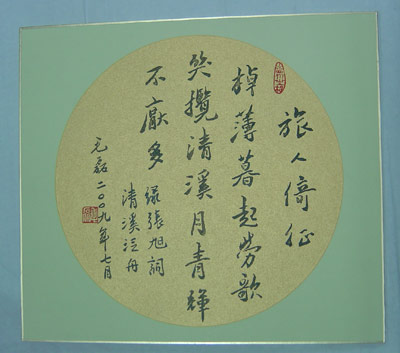 旅人倚征
棹薄暮起劳歌
笑攬清溪月青輝
不厭多
录張旭詞
清溪泛舟
元磊二〇〇九年七月